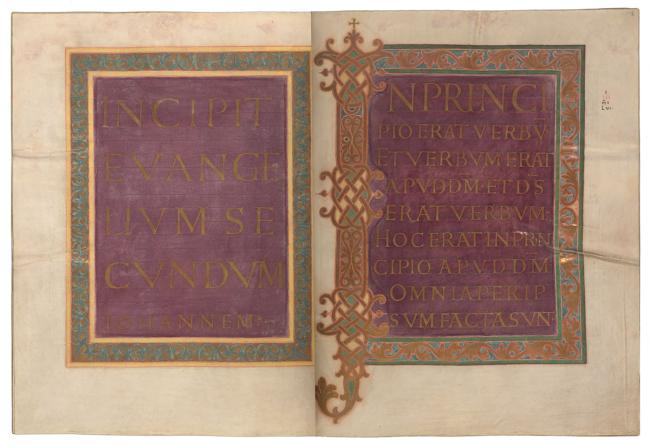 INCIPIT
EVANGE
LIUM·SE
CUNDUM
IOHANNEM
INPRINCI
PIO ERAT VERBŪ
ET VERBUM ERAT
APUD DM̄·ET DS̄
ERAT VERBUM·
HOC ERAT IN PRIN
CIPIO APUD DM̄
OMNIA PER IP
SUM FACTA SUN